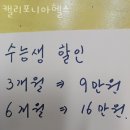 캘리포니아헬스
수능생 할인
3개월 ⇒ 9만원
6개월 ⇒ 16만원